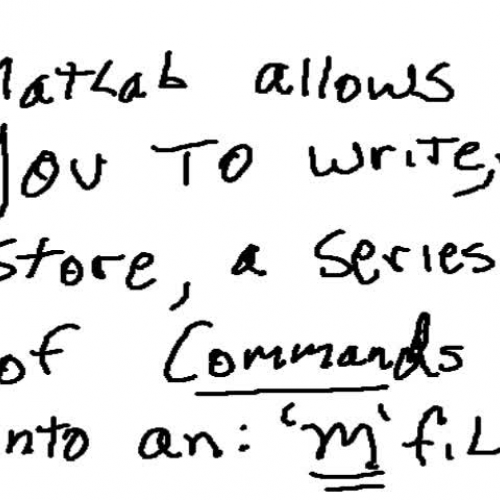 MatLab allows
you To write,
store, a series
of Commands
into an: 'm' fiL